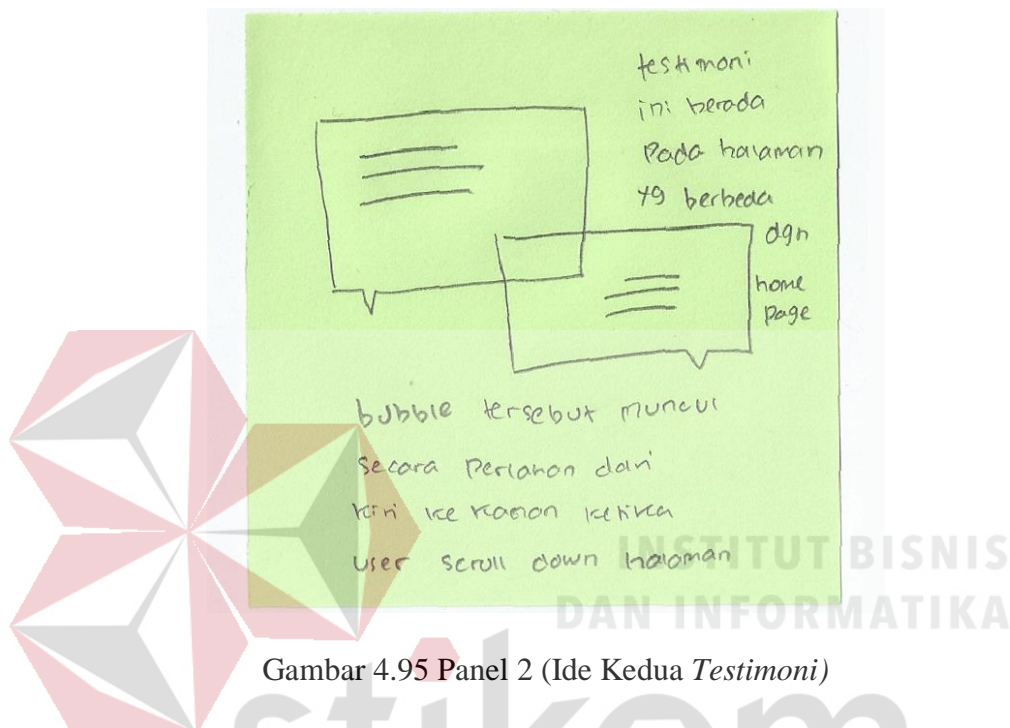 testimoni
ini berada
Pada halaman
yg berbeda
dgn
home
page
bubble tersebut muncul
secara perlahan dari
kiri ke kanan ketika
user scroll down halaman
INSTITUT BISNIS
DAN INFORMATIKA
Gambar 4.95 Panel 2 (Ide Kedua Testimoni)
stikom